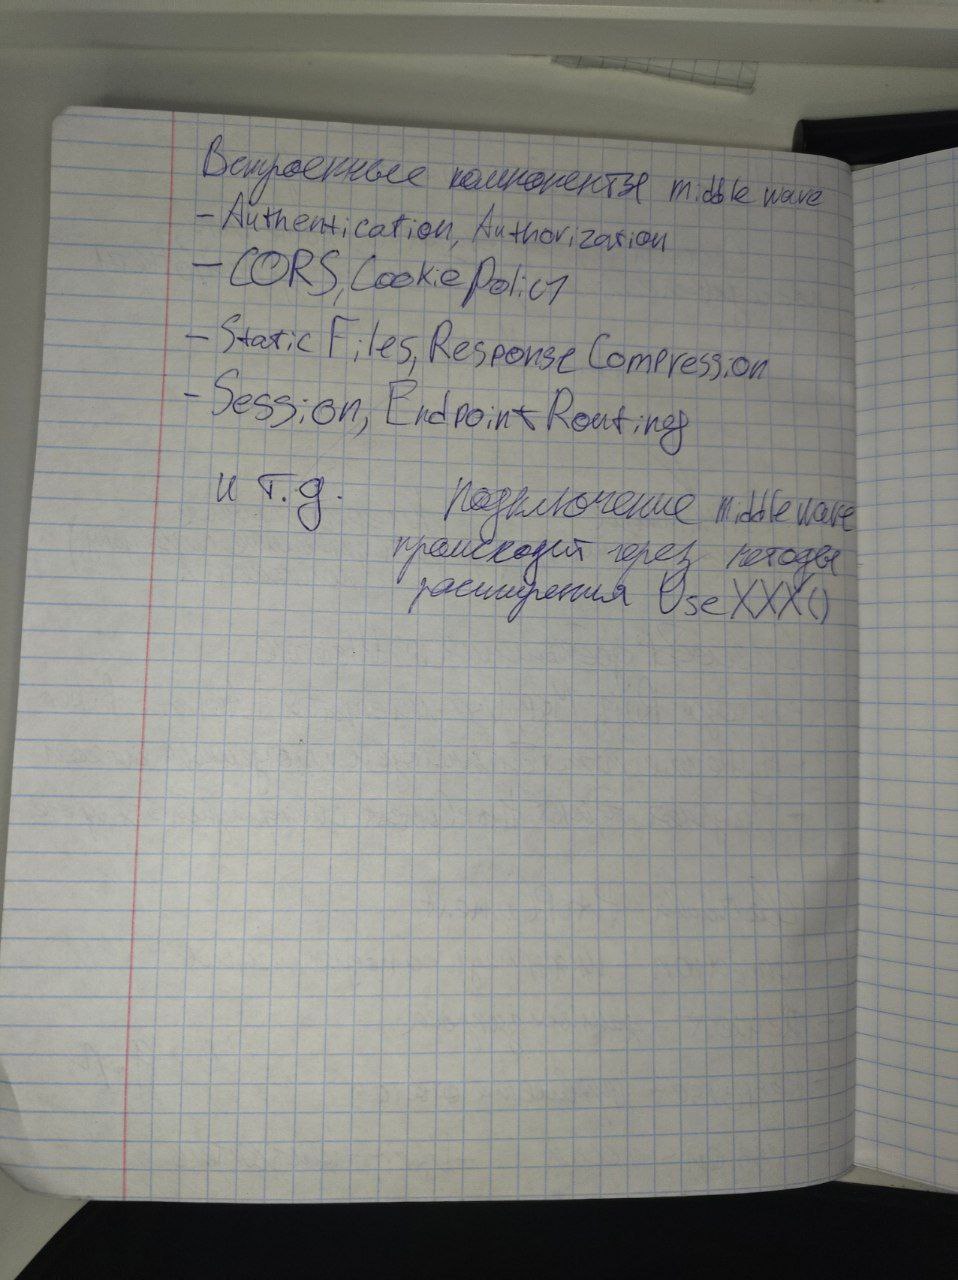 Встроенные компоненты middleware
- Authentication, Authorization
- CORS, Cookie Policy
- Static Files, Response Compression
- Session, Endpoint Routing
и т.д.
подключение middleware
происходит через методы
расширения UseXXX()